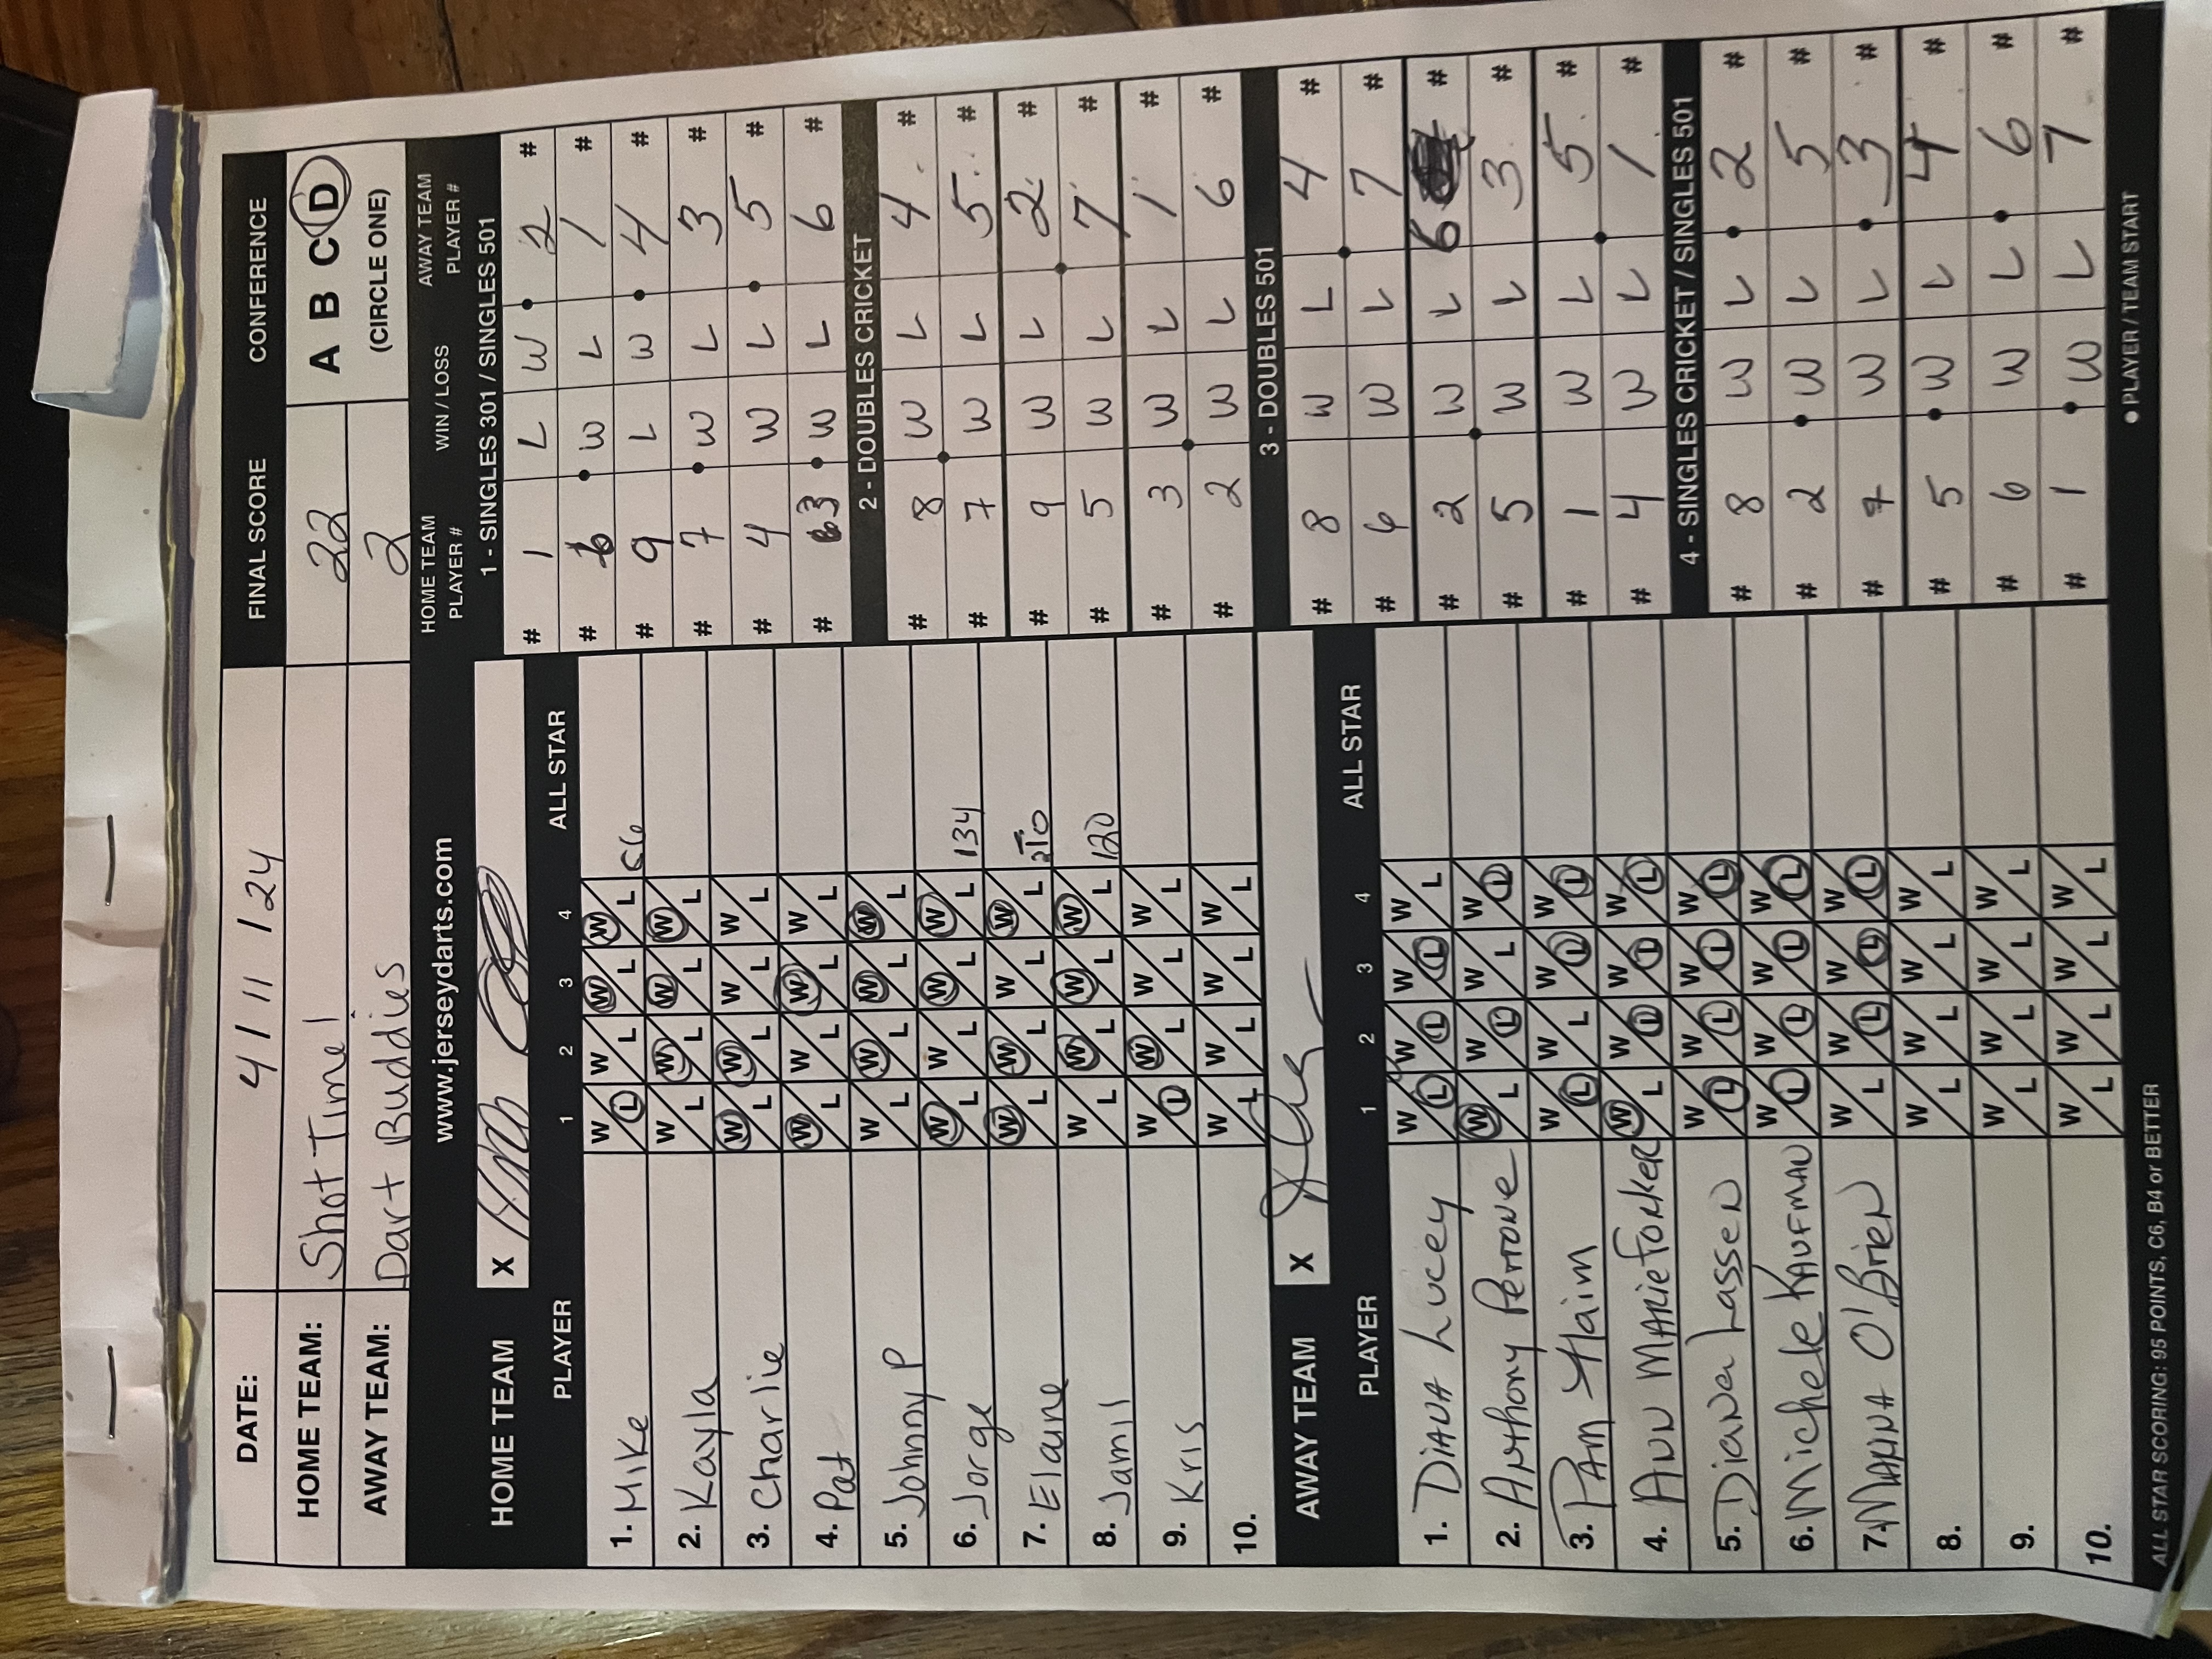 DATE: 4 / 11 / 24 FINAL SCORE CONFERENCE
HOME TEAM: Shot Time! 22 A B C D
AWAY TEAM: Dart Buddies 2 (CIRCLE ONE)
www.jerseydarts.com
HOME TEAM X
PLAYER 1 2 3 4 ALL STAR
1. Mike W L W L W L W L C6
2. Kayla W L W L W L W L
3. Charlie W L W L W L W L
4. Pat W L W L W L W L
5. Johnny P W L W L W L W L
6. Jorge W L W L W L W L 134
7. Elaine W L W L W L W L
8. Jamil W L W L W L W L 120
9. Kris W L W L W L W L
10. W L W L W L W L
AWAY TEAM X
PLAYER 1 2 3 4 ALL STAR
1. DIANA Lucey W L W L W L W L
2. ANthony Perrone W L W L W L W L
3. PAM Haim W L W L W L W L
4. ANN MARIE Fonker W L W L W L W L
5. Diana Lassen W L W L W L W L
6. Michele KAUFMAN W L W L W L W L
7. MARNA O'Brien W L W L W L W L
8. W L W L W L W L
9. W L W L W L W L
10. W L W L W L W L
ALL STAR SCORING: 95 POINTS, C6, B4 or BETTER
HOME TEAM PLAYER # WIN / LOSS AWAY TEAM PLAYER #
1 - SINGLES 301 / SINGLES 501
# 1 L W 2 #
# 6 W L 1 #
# 9 L W 4 #
# 7 W L 3 #
# 4 W L 5 #
# 3 W L 6 #
2 - DOUBLES CRICKET
# 8 W L 4 #
# 7 W L 5 #
# 9 W L 2 #
# 5 W L 7 #
# 3 W L 1 #
# 2 W L 6 #
3 - DOUBLES 501
# 8 W L 4 #
# 6 W L 7 #
# 2 W L 6 #
# 5 W L 3 #
# 1 W L 5 #
# 4 W L 1 #
4 - SINGLES CRICKET / SINGLES 501
# 8 W L 2 #
# 2 W L 5 #
# 7 W L 3 #
# 5 W L 4 #
# 6 W L 6 #
# 1 W L 7 #
● PLAYER / TEAM START